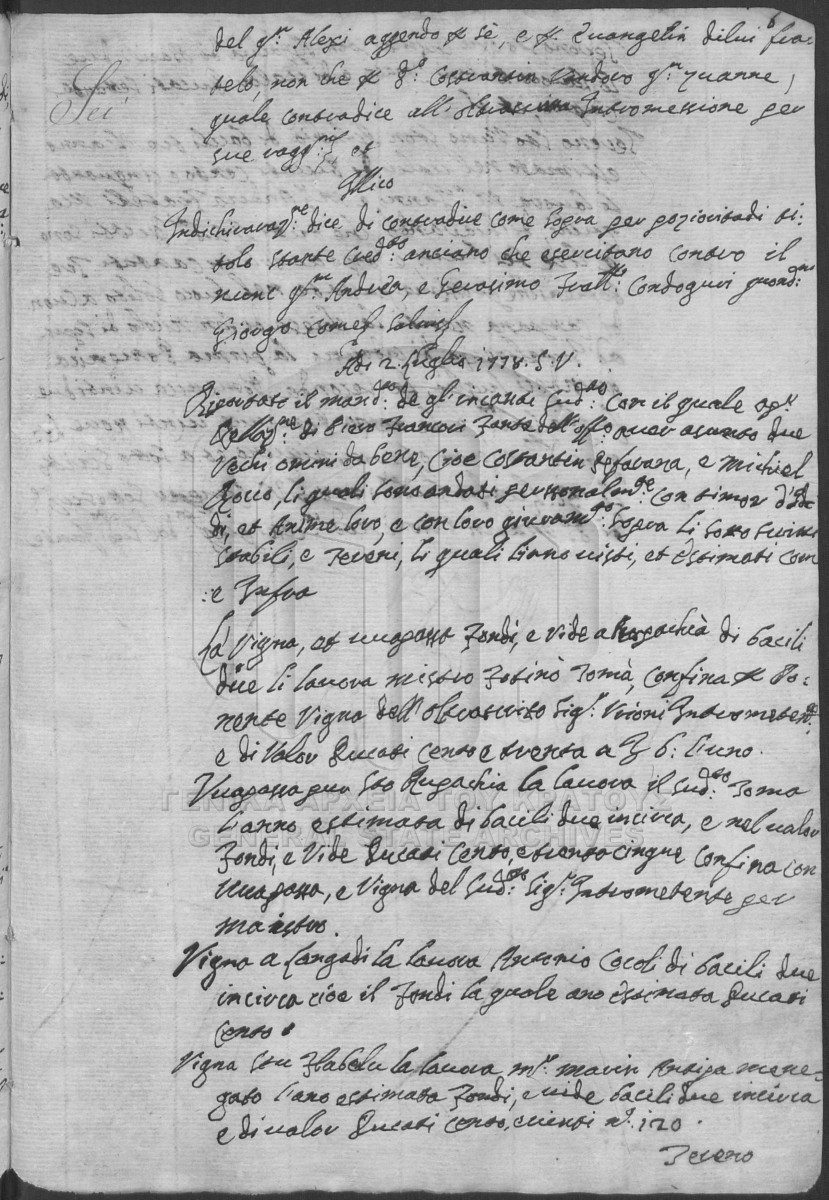 del q.m Alexi aggendo p sè, e p Evangelin di lui fra
telo, non che p d.o Costantin Condoco q.m Zuanne,
quale contradice all'oltrascritta Intromessione per
Sei
sue ragg.ni et
Illico
In dichiaraz.ne dice di contradire come sopra per poziorità di ti:
tolo stante cred.to anziano che esercitano contro il
nunc q.m Andrea, e Gerasimo Frat.lli Condoguri quond.m
Giorgo Comes Salvis
Adi 2. Luglio 1778. S.V.
Riportate il mand.to de gl'incanti sud.to con il quale
di Piero Francesco Fante dell'off.o aver asunto due
Vechi omini da bene, cioe Costantin Sefarana, e Michiel
Rocco, li quali sono andati personalm.te con timor d'Id:
di, et Anime loro, e con loro giuram.to sopra li sotto scritti
stabili, e Tereni, li quali hano visti, et estimati com
:e Infra
La Vigna, et uvapassa Fondi, e Vide a Rupachià di bacili
due li lavora mistro Fotinò Tomà, confina p Po:
nente Vigna dell'oltrascrito Sig.r Vrioni Intrometen.te
e di Valor Ducati Cento e trenta a 6: l'uno.
Uvapassa pur sto Rupachia la lavora il sud.to Toma
l'anno estimata di bacili due incirca, e nel valor
Fondi, e Vide Ducati Cento, e trentacinque confina con
Uvapassa, e Vigna del sud.to Sig.r Intrometente per
maistro.
Vigna a Langadi la lavora Antonio Cocoli di bacili due
incirca cioe il Fondi la quale ano estimata Ducati
Cento.
Vigna stu la lavora m.r Marin Antipa mene-
gato l'ano estimata Fondi, e vide bacili due incirca
e di valor Ducati Cento, e venti n.o 120.
Tereno
ΓΕΝΙΚΑ ΑΡΧΕΙΑ ΤΟΥ ΚΡΑΤΟΥΣ
GENERAL STATE ARCHIVES